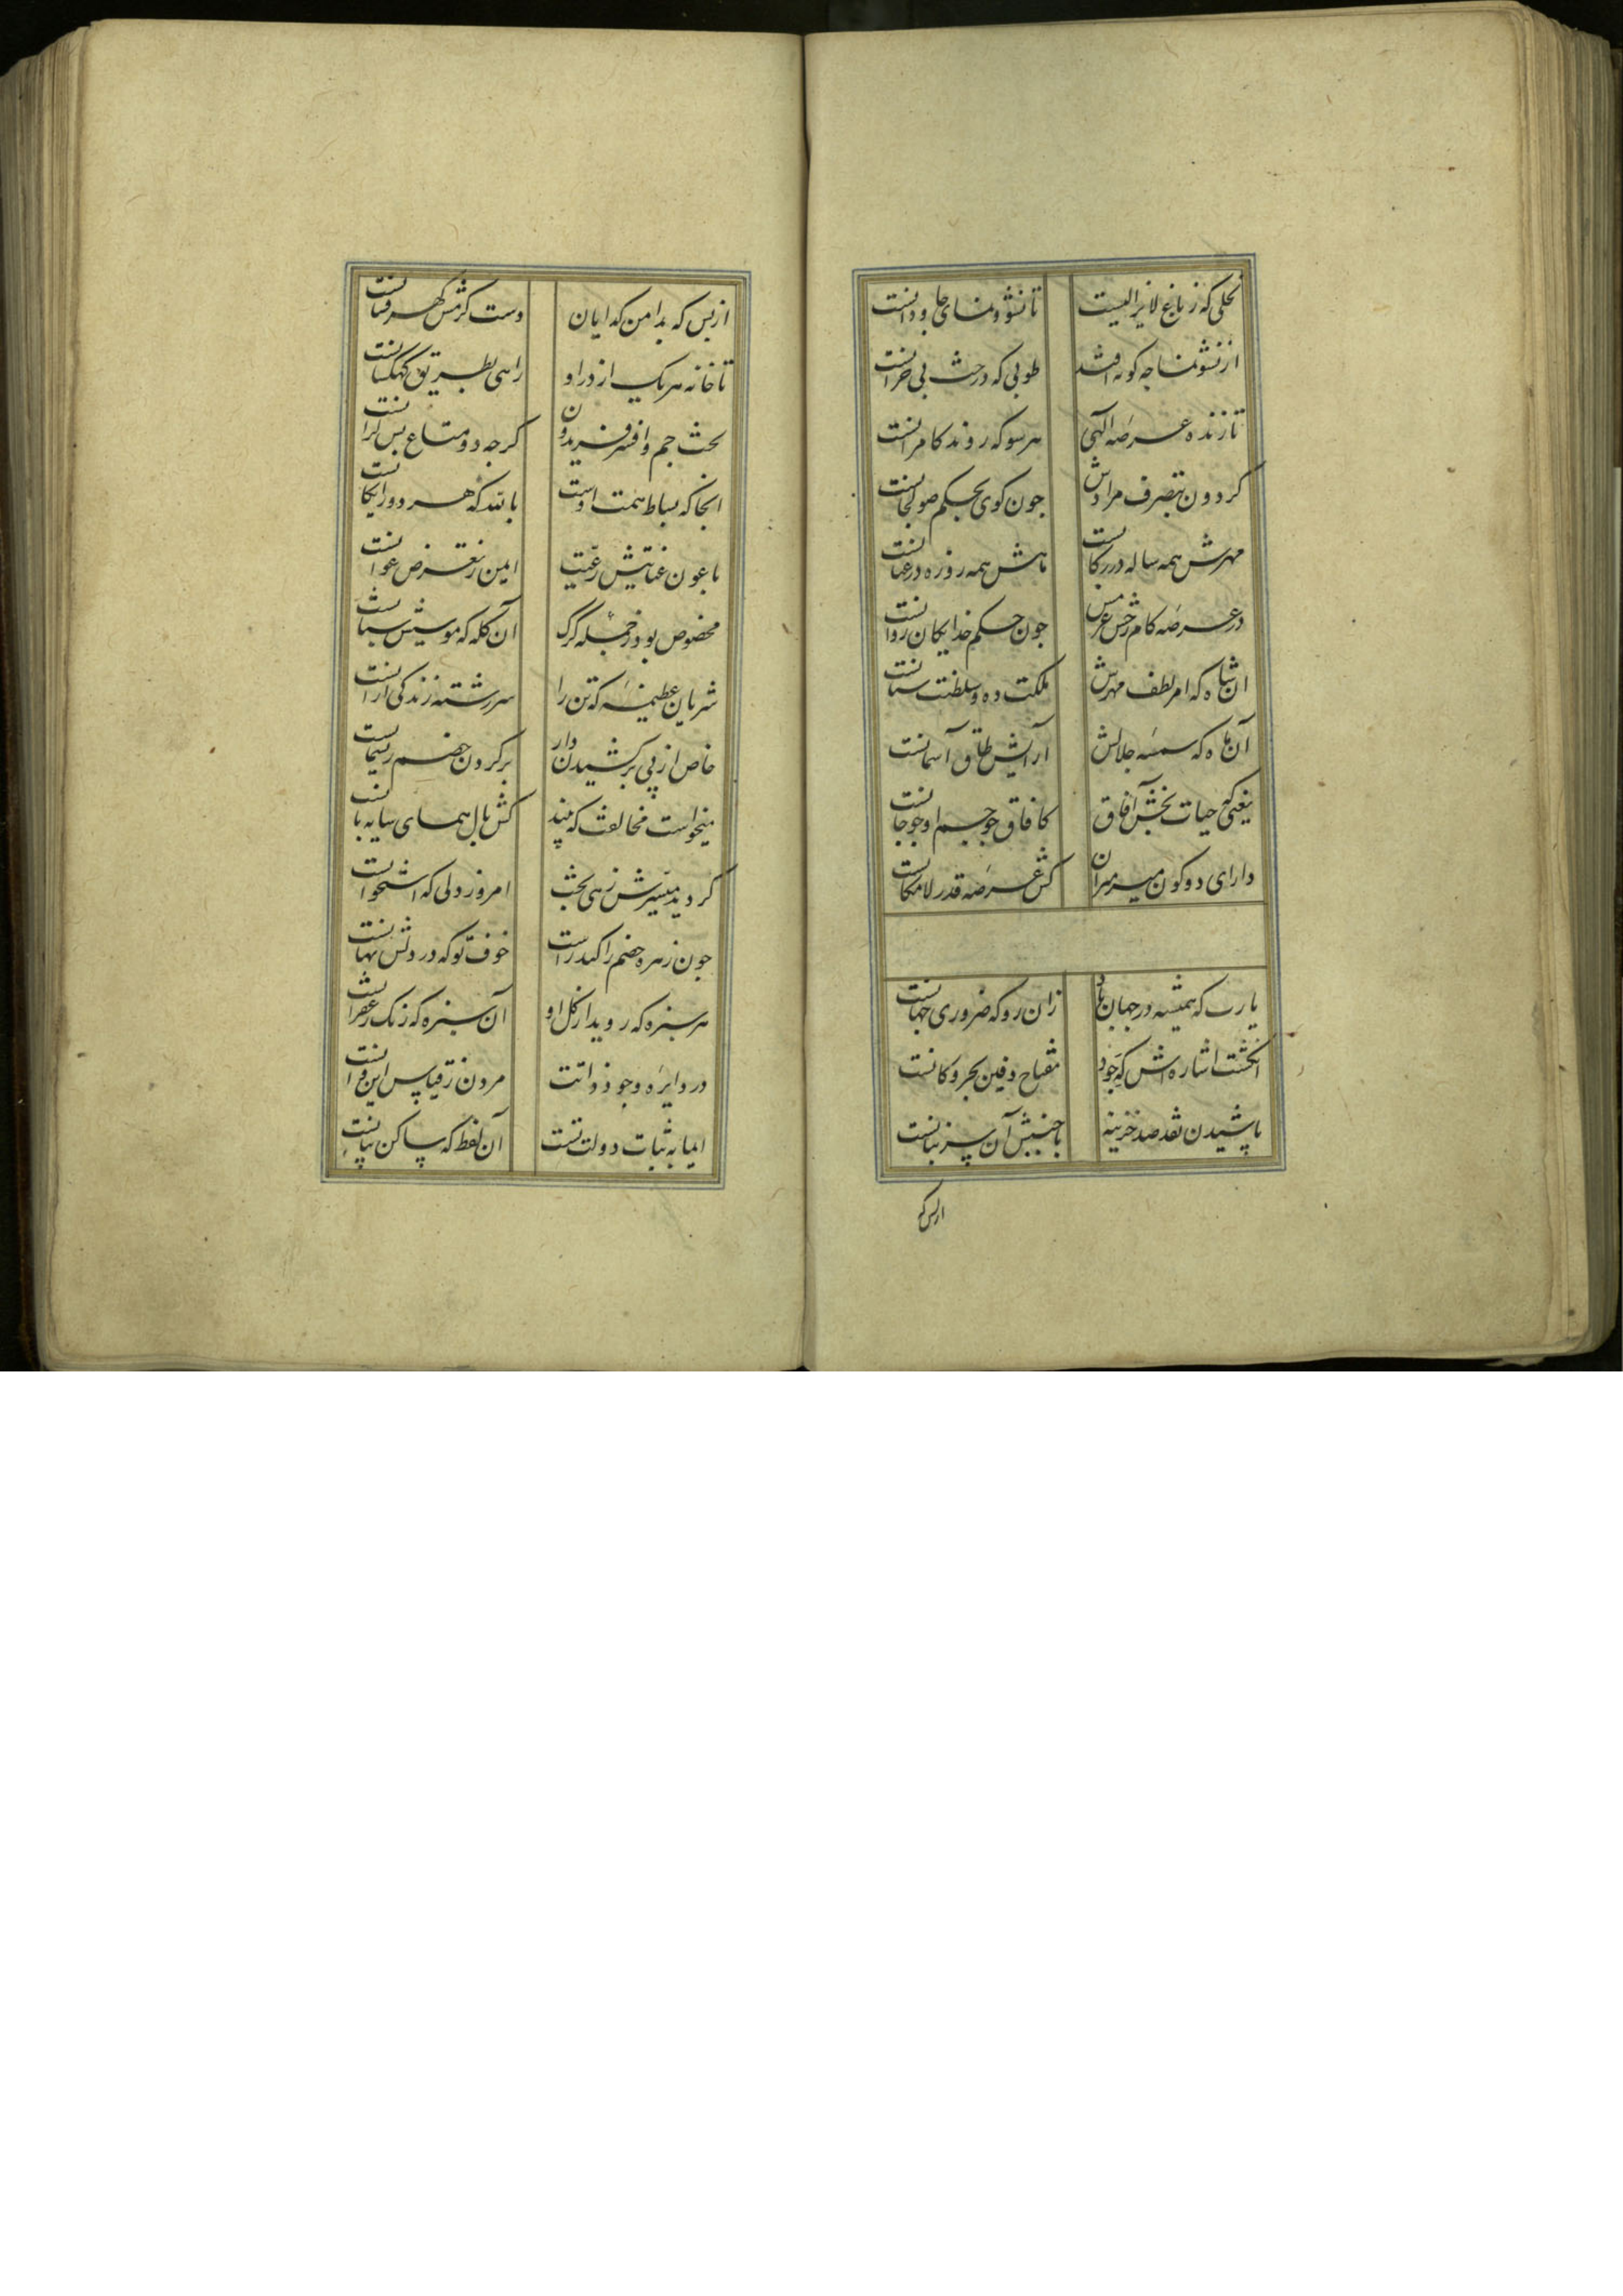 نخلی که ز باغ لایزالیست تا نشو و نمای جاودانست
از نشو نما چه گونه افتد طوبی که درخت بی خزانست
تازنده عرصه الهی هر سو که روند کامرانست
کردون بتصرف مرادش چون کوی بحکم صولجانست
مهرش همه ساله در رکابست ماهش همه روزه در عنانست
در عرصه کام رخش عزمش چون حکم خدایکان روانست
آن شاه که امر لطف مهرش ملکت ده و سلطنت ستانست
آن ماه که شمسه جلالش آرایش طاق آسمانست
یعنی که حیات بخش آفاق کافاق چو جسم او چو جانست
دارای دو کون میر میران کش عرصه قدر لامکانست
یارب که همیشه در جهان باد زان رو که ضروری جهانست
انکشت اشاره اش که جود مفتاح دفین بحر و کانست
پاشیدن نقد صد خزینه با جنبش آن سر بنانست
از بس که
از بس که بدامن کدایان دست کرمش کهرفشانست
تا خانه هر یک از در او راهی بطریق کهکشانست
تخت جم و افسر فریدون کرچه دو متاع بس کرانست
انجا که بساط همت اوست بالله که هر دو رایکانست
با عون عنایتش رعیت ایمن ز تعرض عوانست
مخصوص بود ز جمله کرک آن کله که موسیش شبانست
شریان عظیمه که تن را سررشته زندکی ازانست
خاص از پی برکشیدن دار بر کردن خصم ریسمانست
میخواست مخالفت که بیند کش بال همای سایه بانست
کردید میسرش زهی بخت امروز ولی که استخوانست
چون زهره خصم را کدازست خوف تو که در دلش نهانست
هر سبزه که روید از کل او آن سبزه که رنک زعفرانست
در دایره وجود ذاتت بیرون ز قیاس این و آنست
اما به ثبات دولت تست آن نقطه که ساکن میانست